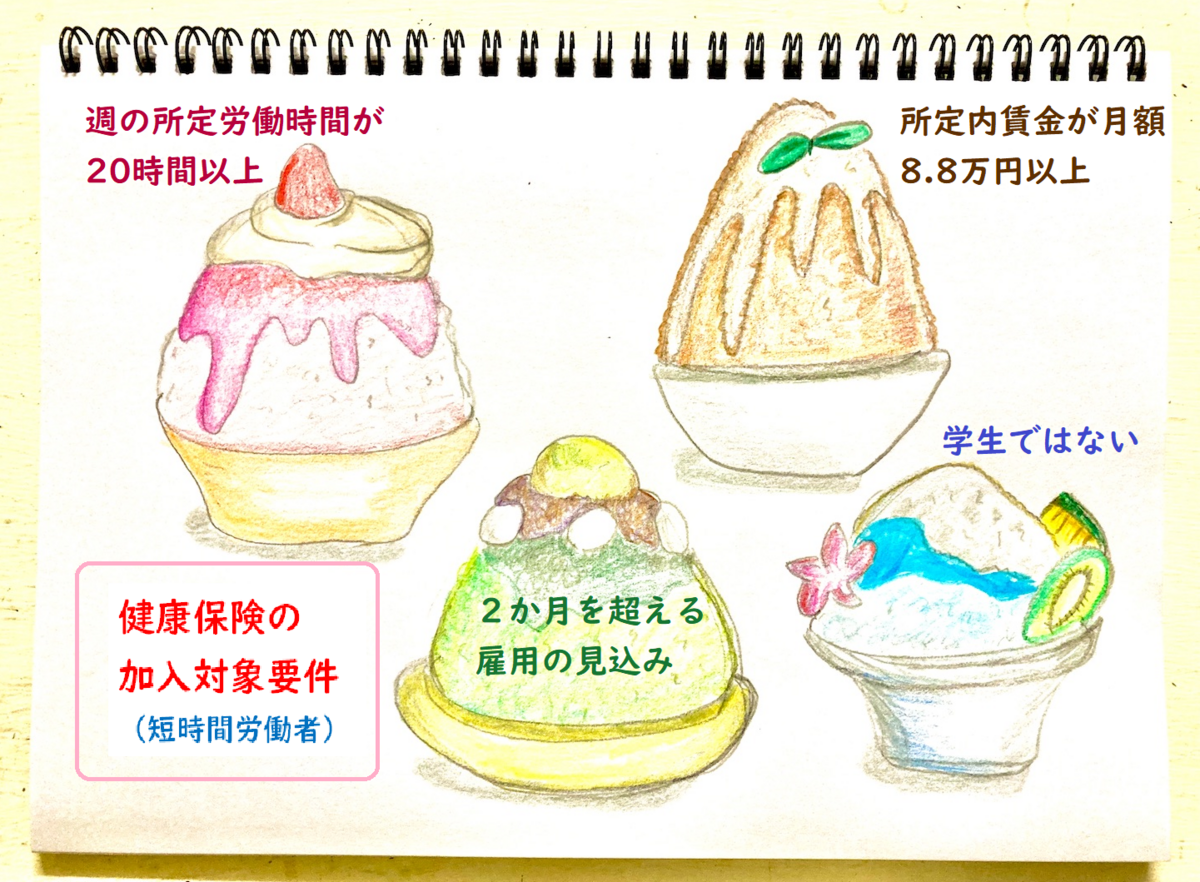 週の所定労働時間が
20時間以上
所定内賃金が月額
8.8万円以上
学生ではない
２か月を超える
雇用の見込み
健康保険の
加入対象要件
（短時間労働者）